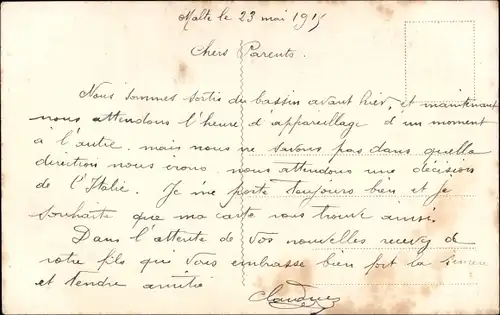 Malte le 23 mai 1915
Chers Parents.
Nous sommes sortis du bassin avant hier, et maintenant
nous attendons l'heure d'appareillage d'un moment
à l'autre. mais nous ne savons pas dans quelle
direction nous irons. nous attendons une décisions
de l'Italie. Je me porte toujours bien et je
souhaite que ma carte vous trouve ainsi.
Dans l'attente de vos nouvelles recevez de
votre fils qui vous embrasse bien fort la sincère
et tendre amitié